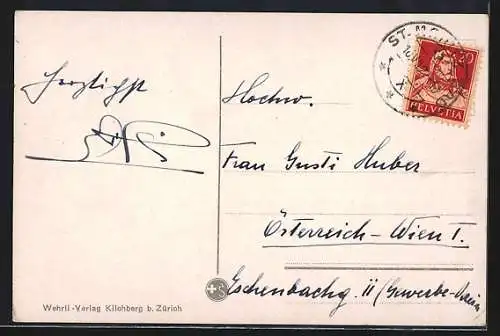 Herzlichst
Hochw.
Frau Gusti Huber
Österreich-Wien I.
Eschenbachg. 11 (Gewerbe-Verein
Wehrli-Verlag Kilchberg b. Zürich
ST. M
20
HELVETIA